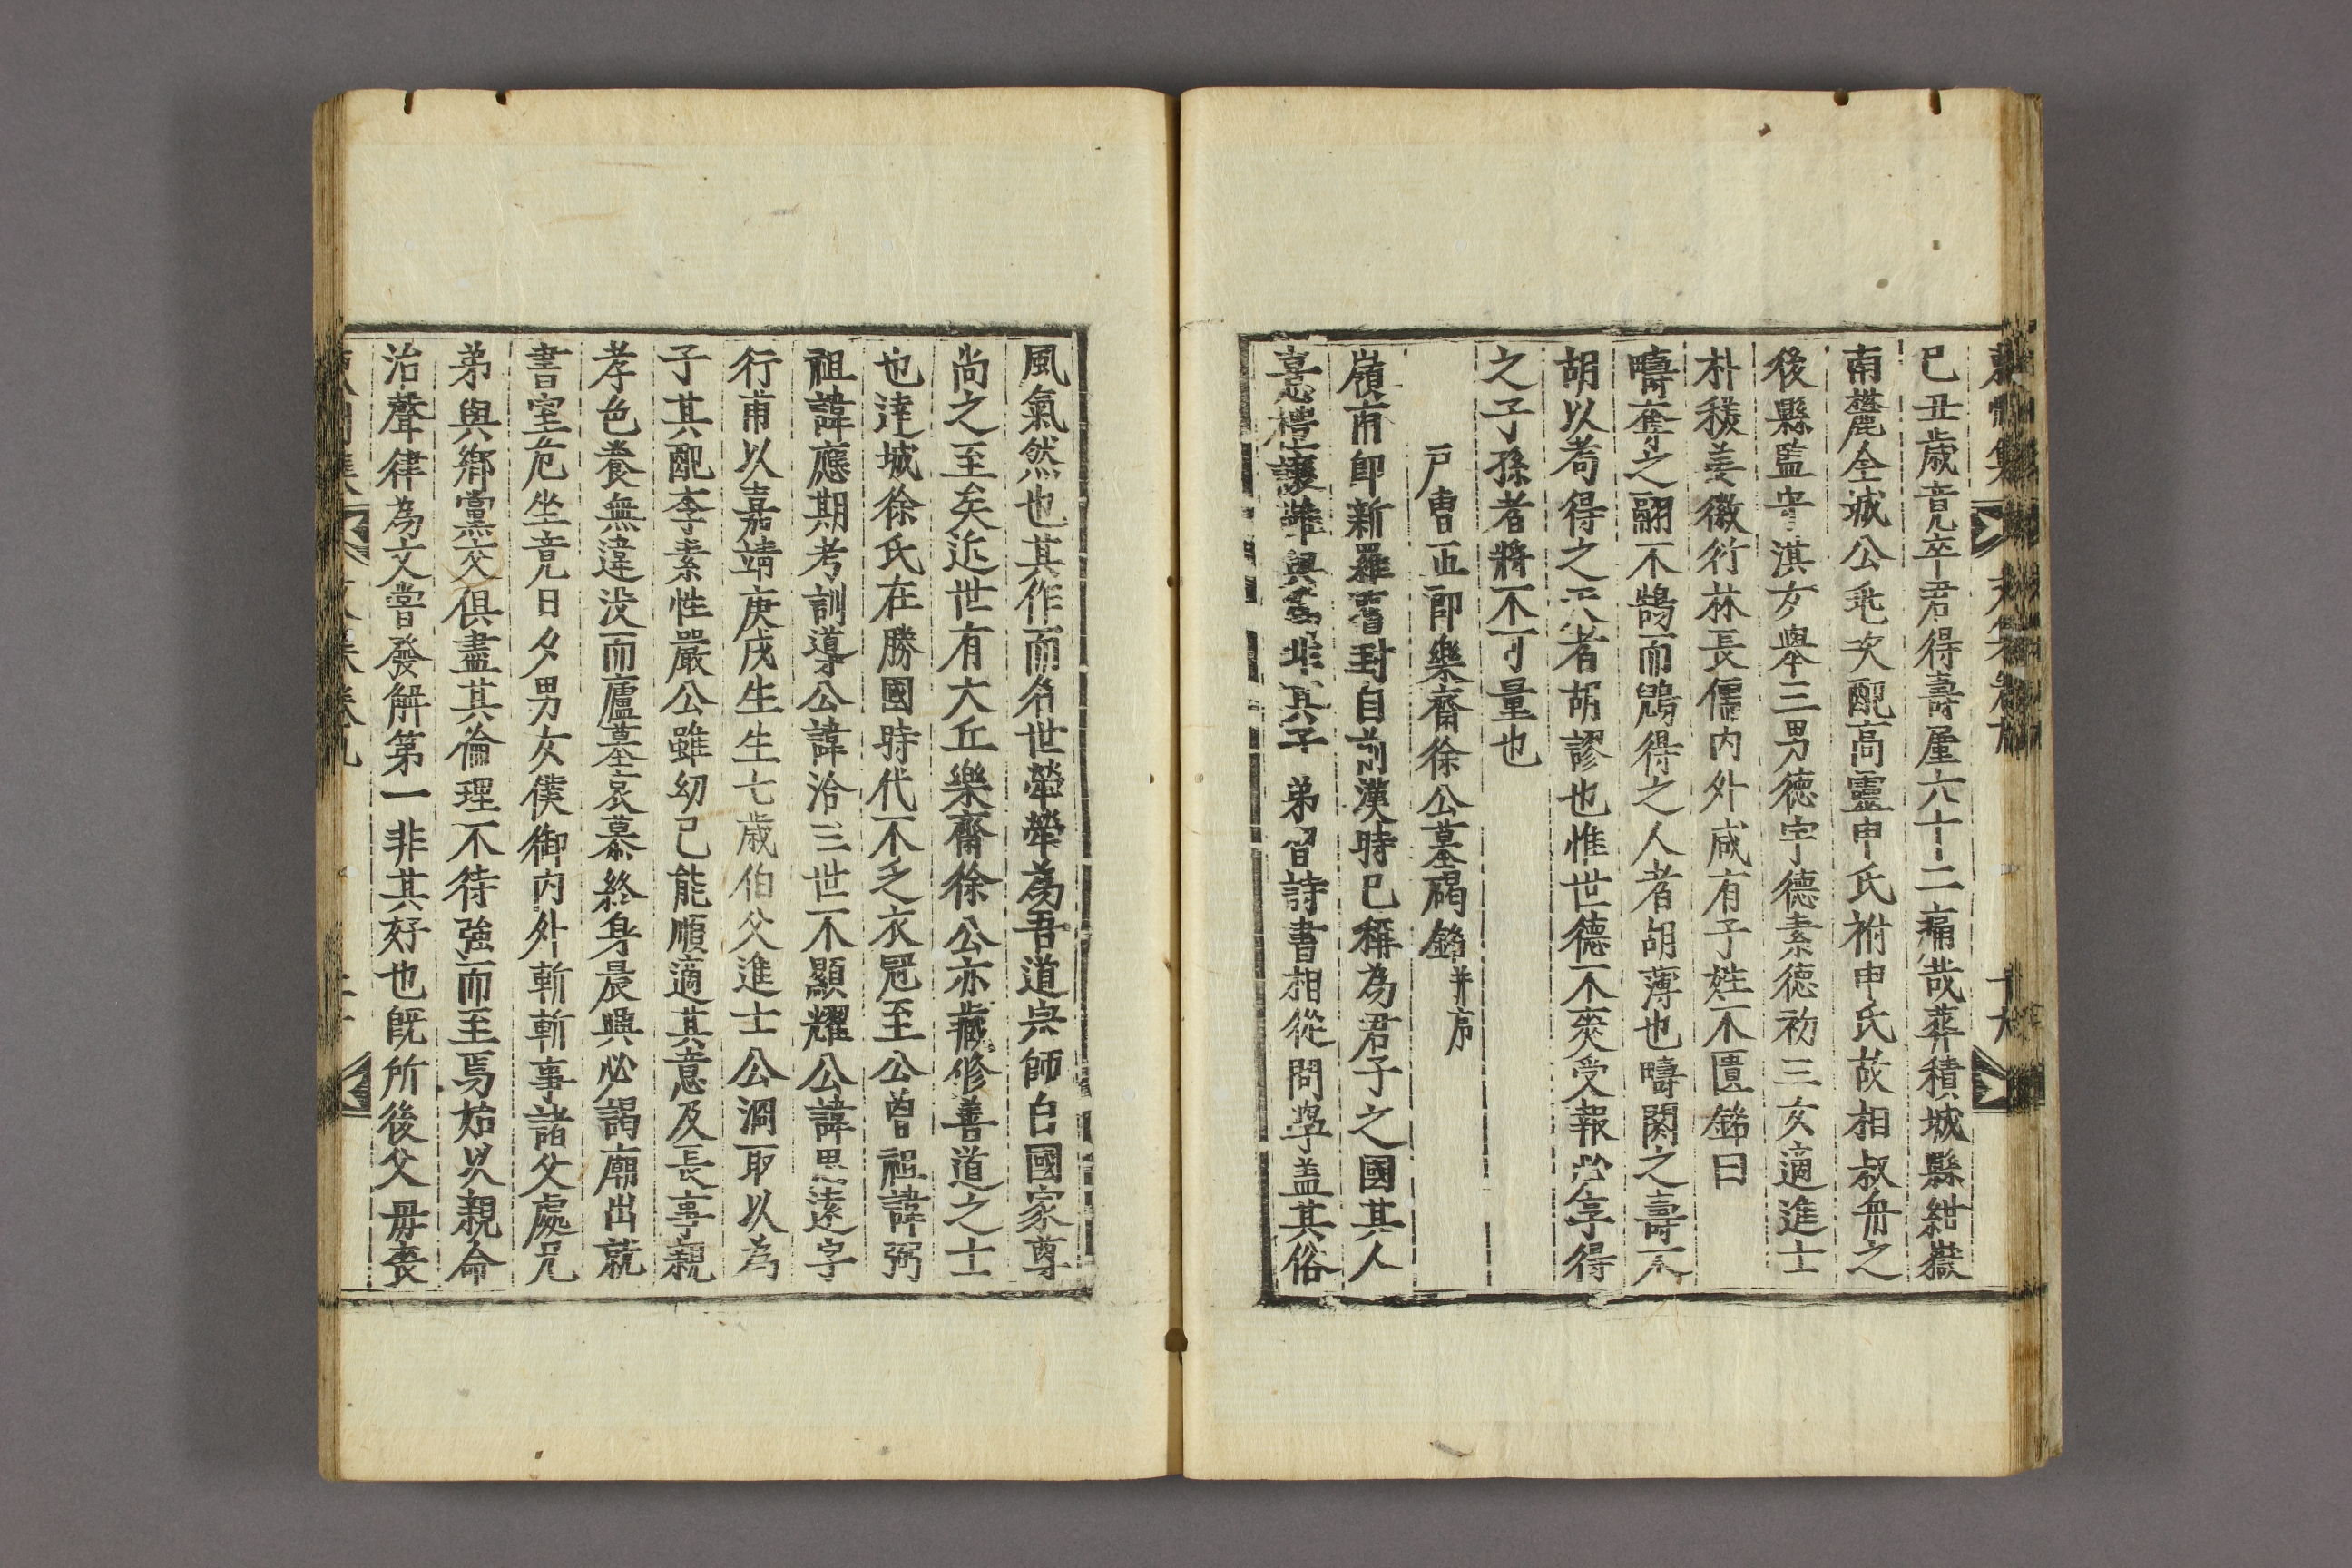 己丑歲竟卒君得壽厪六十二痛哉葬積城縣紺嶽
南麓全城公兆次配高靈申氏祔申氏故相叔舟之
後縣監守淇女擧三男德宇德素德礽三女適進士
朴䅘姜徽衍林長儒內外咸有子姓不匱銘曰
疇奪之翮不鵠而鴳得之人者胡薄也疇閼之壽不
胡以耈得之天者胡謬也惟世德不爽受報必享得
之子孫者將不可量也
戶曹正郎樂齋徐公墓碣銘并序
嶺南卽新羅舊封自前漢時已稱爲君子之國其人
憙禮讓華與 非其子弟習詩書相從問學盖其俗
風氣然也其作而名世犖犖爲吾道宗師白國家尊
尚之至矣近世有大丘樂齋徐公亦藏修善道之士
也達城徐氏在勝國時代不乏衣冠至公曾祖諱弼
祖諱應期考訓導公諱洽三世不顯耀公諱思遠字
行甫以嘉靖庚戌生生七歲伯父進士公泂取以爲
子其配李素性嚴公雖幼已能順適其意及長事親
孝色養無違沒而廬墓哀慕終身晨興必謁廟出就
書室危坐竟日夕男女僕御內外斬斬事諸父處兄
弟與鄉黨交俱盡其倫理不待強而至焉始以親命
治聲律爲文嘗發解第一非其好也旣所後父母喪